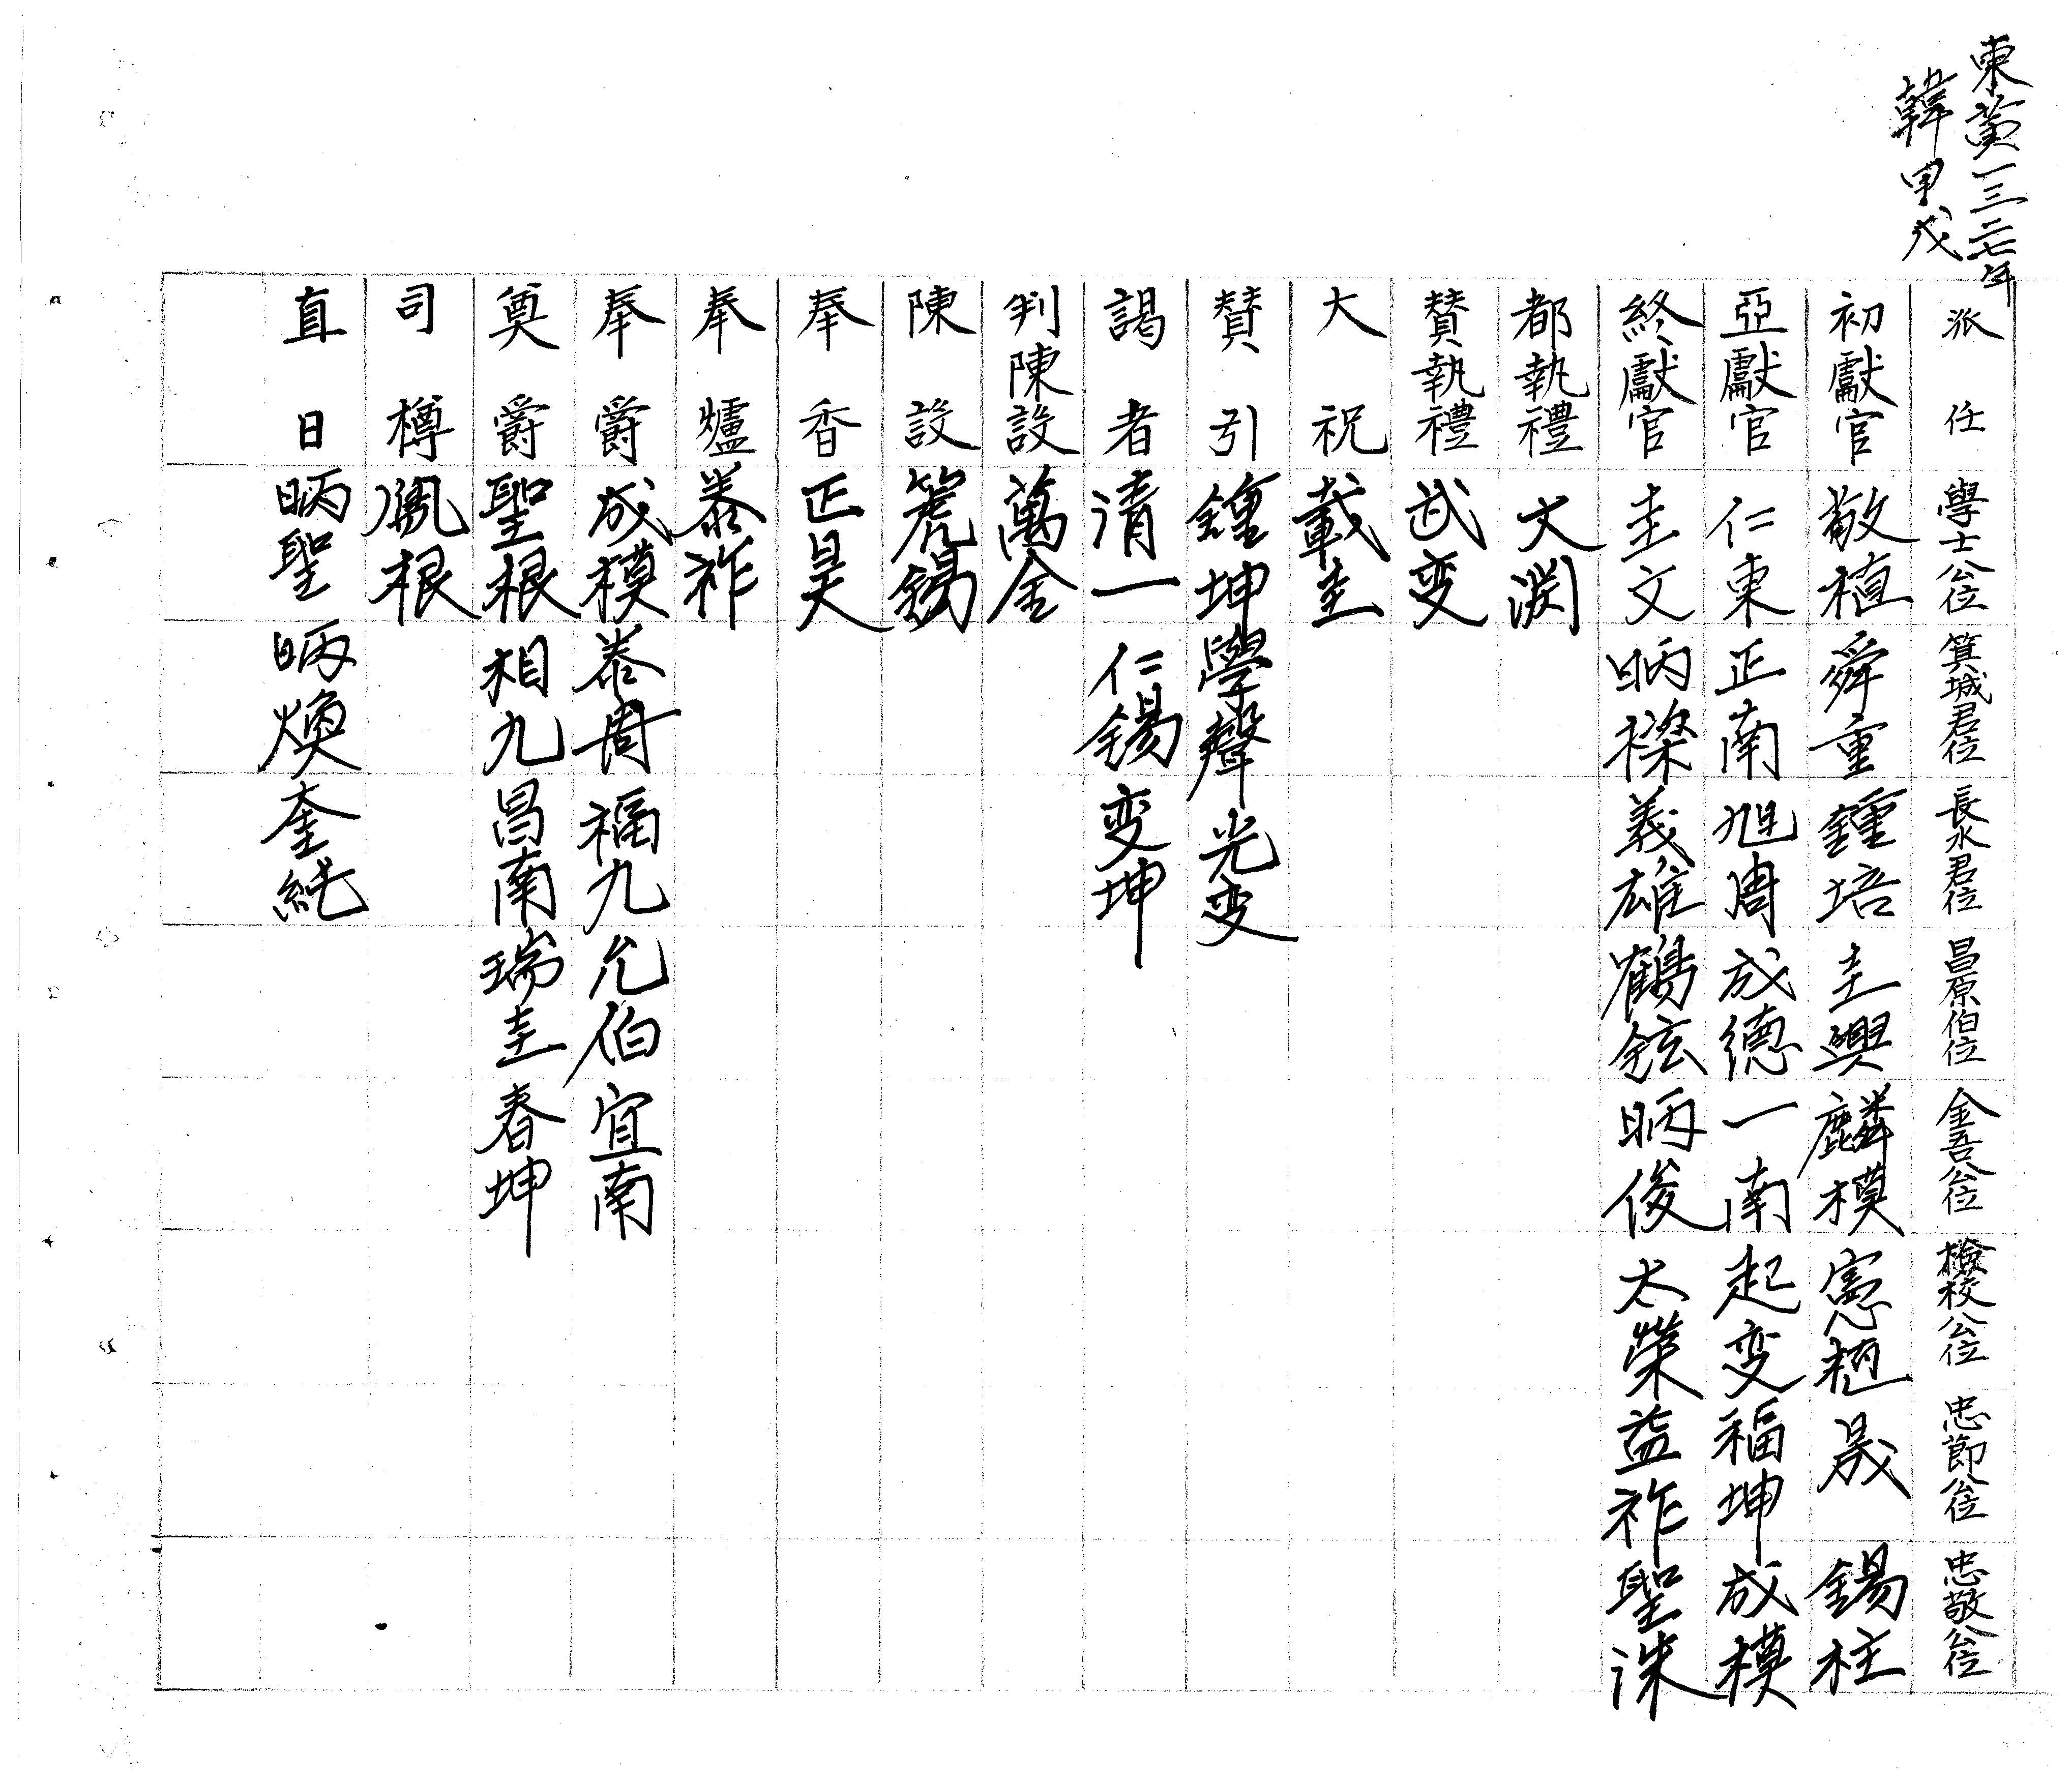 東黃一三二七年
韓甲戌
派任 學士公位 箕城君位 長水君位 昌原伯位 金吾公位 檢校公位 忠節公位 忠敬公位
初獻官 敬植 舜重 鍾培 圭興 麟模 憲植 晟 錫柱
亞獻官 仁東 正南 旭周 成德 一南 起変 福坤 成模
終獻官 圭文 昞檪 義雄 鶴鉉 昞俊 太榮 益祚 聖洙
都執禮 大渊
賛執禮 武変
大祝 載圭
賛引 鍾坤 學聲 光変
謁者 清一 仁錫 変坤
判陳設 萬金
陳設 錫
奉香 正昊
奉爐 泰祚
奉爵 成模 泰周 福九 允伯 宜南
奠爵 聖根 相九 昌南 瑞圭 春坤
司樽 根
直日 昞聖 昞煥 奎純